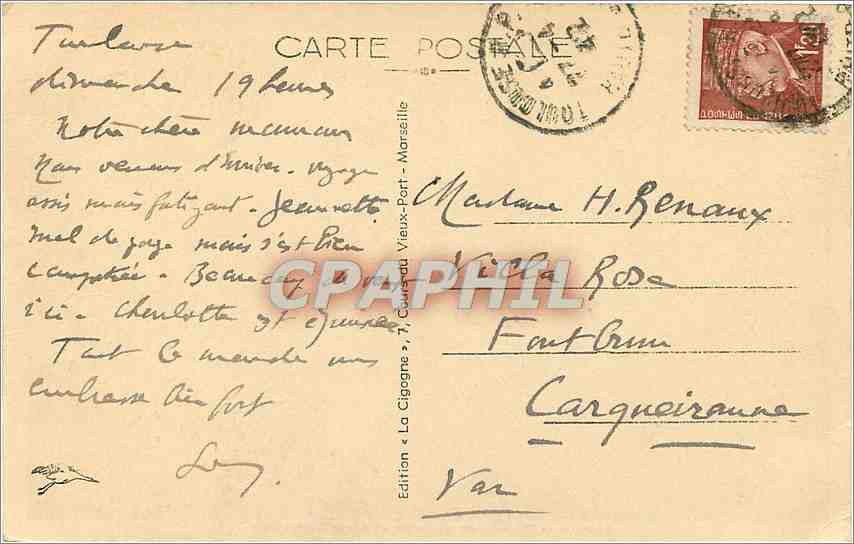 CARTE POSTALE
Toulouse
dimanche 19 heures
Notre chère maman
Nous venons d'arriver. voyage
assis mais fatigant. Jeannette
mal de gorge mais s'est bien
comportée. Beaucoup de
ici. Charlotte est
Tout le monde vous
embrasse bien fort
Edition « La Cigogne », 7, Cours du Vieux-Port - Marseille
CPAPHIL
TOULOUSE
Madame H. Renaux
Villa Rose
Fontbrun
Carqueiranne
Var